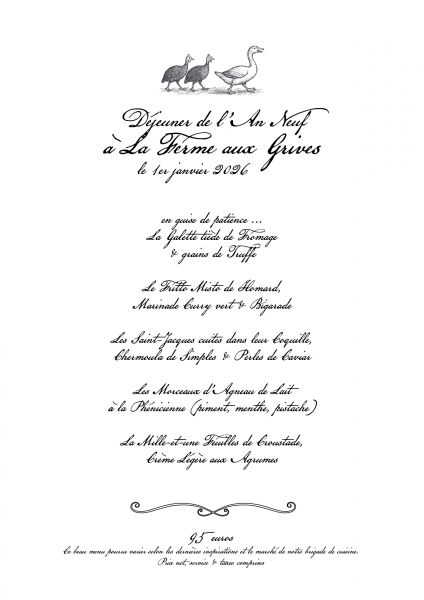 Déjeuner de l'An Neuf
à La Ferme aux Grives
le 1er janvier 2026
en guise de patience ...
La Galette tiède de Fromage
& grains de Truffe
Le Fritto Misto de Homard,
Marinade Curry vert & Bigarade
Les Saint-Jacques cuites dans leur Coquille,
Chermoula de Simples & Perles de Caviar
Les Morceaux d'Agneau de Lait
à la Phénicienne (piment, menthe, pistache)
La Mille-et-une Feuilles de Croustade,
Crème Légère aux Agrumes
95 euros
Ce beau menu pourra varier selon les dernières inspirations et le marché de notre brigade de cuisine.
Prix net, service & taxes comprises